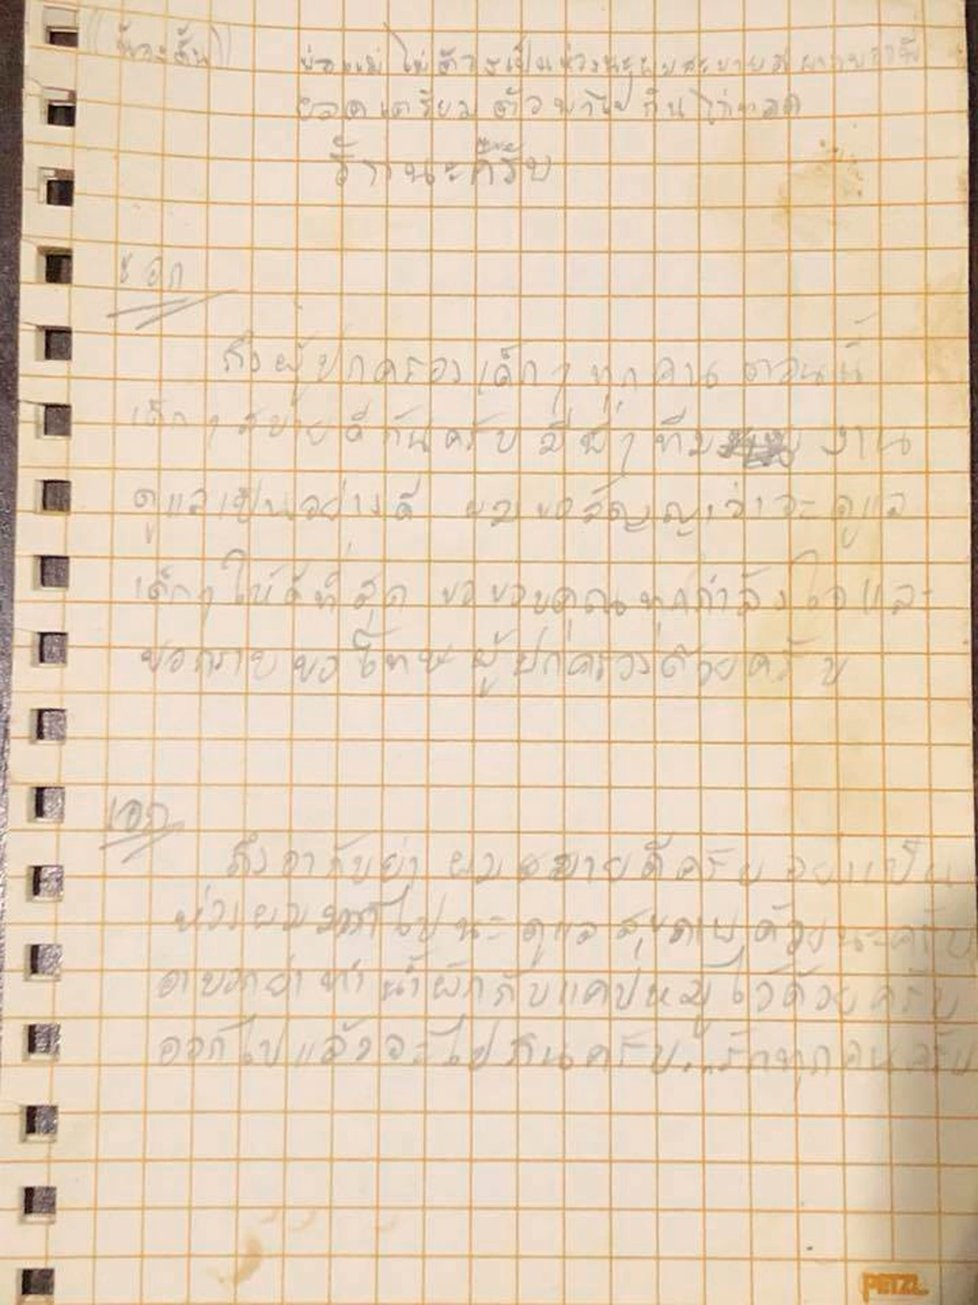 ((น้องตั้น))
พ่อแม่ ไม่ต้องเป็นห่วงนะผมสบายดี
ยอดเตรียมตัวพาไปกินไก่ทอด
ด้วยนะครับ
โค้ชเอก
ถึงผู้ปกครองเด็กๆ ทุกคน ตอนนี้
เด็กๆ สบายดีกันครับ มีพี่ๆ ทีม งาน
ดูแลเป็นอย่างดี ผมขอสัญญาว่าจะดูแล
เด็กๆ ให้ดีที่สุด ขอขอบคุณทุกกำลังใจและ
ขอกราบขอโทษผู้ปกครองด้วยครับ
เอก
ถึงอากับย่า ผมสบายดีครับ อย่าเป็น
ห่วงผม ไปนะ ดูแลสุขภาพด้วยนะครับ
อาบอกย่าทำน้ำผักกับแคปหมูไว้ด้วยครับ
ออกไปแล้วจะไปกินครับ...รักทุกคนครับ
PETZL